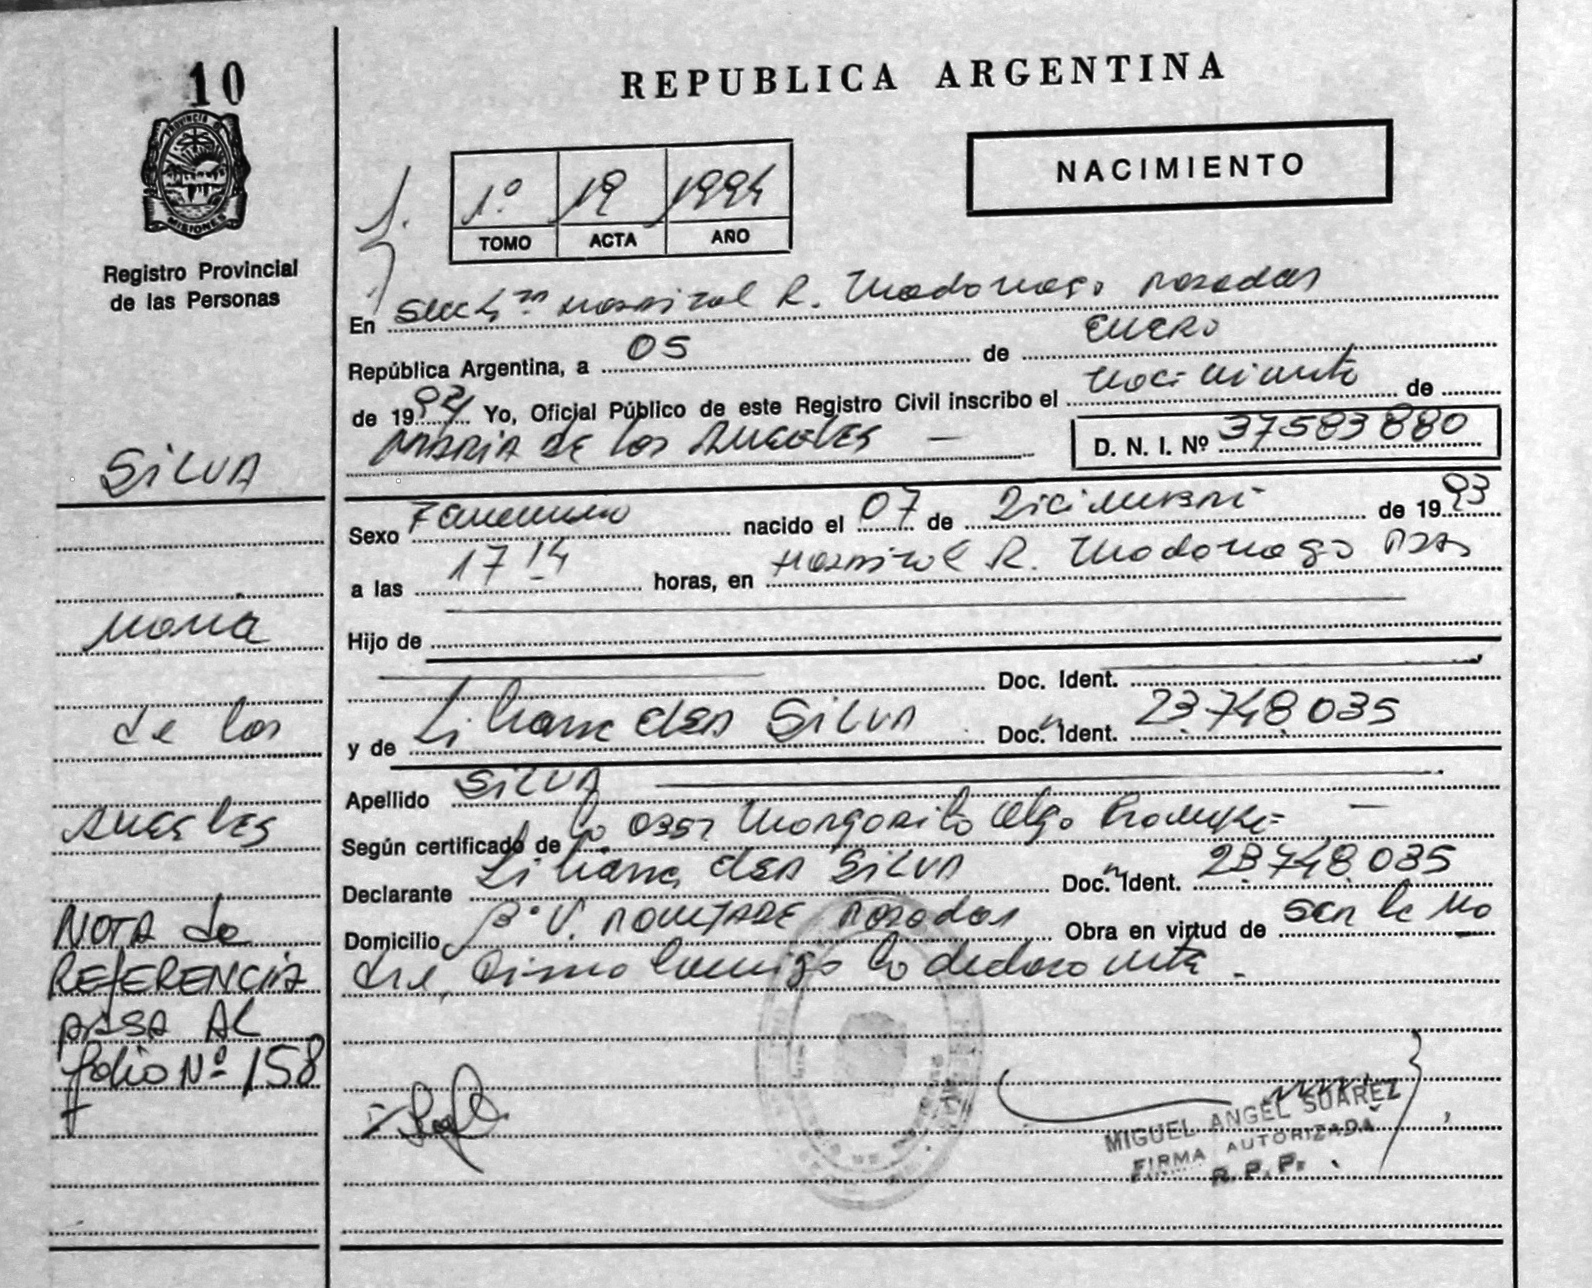 10
PROVINCIA DE
MISIONES
Registro Provincial
de las Personas
SILVA
María
de los
ANGELES
NOTA de
REFERENCIA
PASA AL
folio Nº 158
REPUBLICA ARGENTINA
NACIMIENTO
1º 19 1994
TOMO ACTA AÑO
En Secc Hospital R. Madariaga Posadas
República Argentina, a 05 de ENERO
de 1994 Yo, Oficial Público de este Registro Civil inscribo el Nacimiento de
MARIA DE LOS ANGELES — D. N. I. Nº 37583880
Sexo Femenino nacido el 07 de Diciembre de 1993
a las 17 14 horas, en Hospital R. Madariaga Pdas
Hijo de
Doc. Ident.
y de Liliana elsa SILVA Doc. Ident. 23.748.035
Apellido SILVA
Según certificado de la Obst Margarita Olga
Declarante Liliana elsa SILVA Doc. Ident. 23.748.035
Domicilio Bº V. Posadas Obra en virtud de ser la Ma
dre, Firma conmigo la declarante.
MIGUEL ANGEL SUAREZ
FIRMA AUTORIZADA
R. P. P.